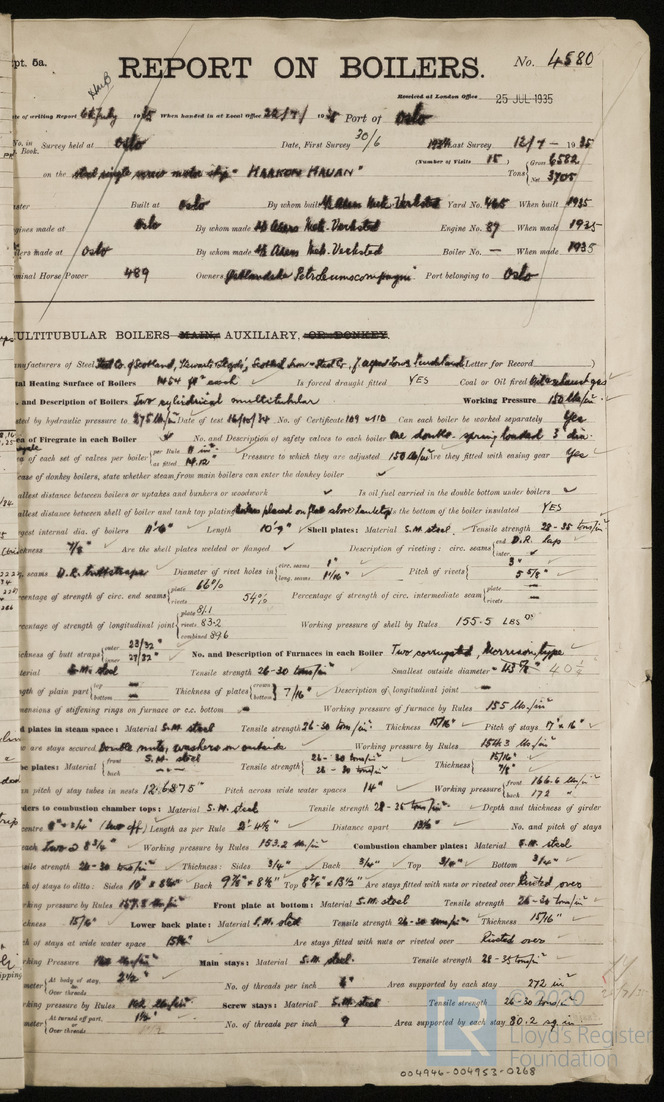 pt. 5a.
REPORT ON BOILERS.
No. 4580
Received at London Office 25 JUL 1935
te of writing Report 6th July 1935 When handed in at Local Office 22/7/1935 Port of Oslo
No. in Book. Survey held at Oslo Date, First Survey 30/6 1934 Last Survey 12/7 - 1935
(Number of Visits 15) Tons {Gross 6582 Net 3705
on the steel single screw motor ship "HAAKON HAUAN"
ster Built at Oslo By whom built Akers Mek. Verksted Yard No. 465 When built 1935
gines made at Oslo By whom made Akers Mek. Verksted Engine No. 89 When made 1935
lers made at Oslo By whom made Akers Mek. Verksted Boiler No. — When made 1935
minal Horse Power 489 Owners Petroleumscompagni Port belonging to Oslo
ULTITUBULAR BOILERS MAIN, AUXILIARY, OR DONKEY.
nufacturers of Steel Co. of Scotland, Stewarts Lloyds', Scottish Iron & Steel Co. Letter for Record )
tal Heating Surface of Boilers 1454 ft² each Is forced draught fitted YES Coal or Oil fired Oil & exhaust gas
. and Description of Boilers Two cylindrical multitubular Working Pressure 150 lbs/in²
sted by hydraulic pressure to 275 lbs/in² Date of test 16/10/34 No. of Certificate 109 & 110 Can each boiler be worked separately Yes
ea of Firegrate in each Boiler No. and Description of safety valves to each boiler one double spring loaded 3" dia.
ea of each set of valves per boiler {per Rule 11 in² as fitted 14.12 Pressure to which they are adjusted 150 lbs/in² Are they fitted with easing gear Yes
case of donkey boilers, state whether steam from main boilers can enter the donkey boiler
allest distance between boilers or uptakes and bunkers or woodwork Is oil fuel carried in the double bottom under boilers
allest distance between shell of boiler and tank top plating boilers placed on flat above tanktop Is the bottom of the boiler insulated YES
gest internal dia. of boilers 11'6" Length 10'-9" Shell plates: Material S.M. steel Tensile strength 28-35 tons/in²
ickness 7/8" Are the shell plates welded or flanged Description of riveting: circ. seams {end D.R. Lap inter.
. seams D.R. buttstraps Diameter of rivet holes in {circ. seams 1" long. seams 1 1/16" Pitch of rivets {3" 5 5/8"
centage of strength of circ. end seams {plate 66% rivets 54% Percentage of strength of circ. intermediate seam {plate — rivets —
centage of strength of longitudinal joint {plate 81.1 rivets 83.2 combined 89.6 Working pressure of shell by Rules 155.5 LBS
ckness of butt straps {outer 23/32" inner 27/32" No. and Description of Furnaces in each Boiler Two corrugated Morrison type
terial S.M. steel Tensile strength 26-30 tons/in² Smallest outside diameter 43 7/8" 40 1/2
gth of plain part {top — bottom — Thickness of plates {crown bottom} 7/16" Description of longitudinal joint —
mensions of stiffening rings on furnace or c.c. bottom — Working pressure of furnace by Rules 155 lbs/in²
d plates in steam space: Material S.M. steel Tensile strength 26-30 tons/in² Thickness 15/16" Pitch of stays 17" x 16"
w are stays secured Double nuts, washers on outside Working pressure by Rules 154.3 lbs/in²
be plates: Material {front S.M. steel back — " — Tensile strength {26-30 tons/in² 26-30 tons/in² Thickness {15/16" 7/8"
an pitch of stay tubes in nests 12.6875" Pitch across wide water spaces 14" Working pressure {front 166.6 lbs/in² back 172 "
ders to combustion chamber tops: Material S.M. steel Tensile strength 28-35 tons/in² Depth and thickness of girder
centre 8" x 3/4" (two off) Length as per Rule 2'-4 1/2" Distance apart No. and pitch of stays
each Two @ 8 3/4" Working pressure by Rules 153.2 lbs/in² Combustion chamber plates: Material S.M. steel
sile strength 26-30 tons/in² Thickness: Sides 3/4" Back 3/4" Top 3/4" Bottom 3/4"
ch of stays to ditto: Sides Back 9 7/8" x 8 1/2" Top 8 3/4" x 13 1/2" Are stays fitted with nuts or riveted over Riveted over
rking pressure by Rules Front plate at bottom: Material S.M. steel Tensile strength 26-30 tons/in²
ckness 15/16" Lower back plate: Material S.M. steel Tensile strength 26-30 tons/in² Thickness 15/16"
ch of stays at wide water space Are stays fitted with nuts or riveted over Riveted over
rking Pressure Main stays: Material S.M. steel Tensile strength 28-35 tons/in²
meter {At body of stay, or Over threads 2 1/2" No. of threads per inch 6" Area supported by each stay 272 in²
rking pressure by Rules Screw stays: Material S.M. steel Tensile strength 26-30 tons/in²
meter {At turned off part, or Over threads 1 1/2" No. of threads per inch 9 Area supported by each stay 80.2 sq. in
LR
© 2020
Lloyd's Register
Foundation
004946-004953-0268